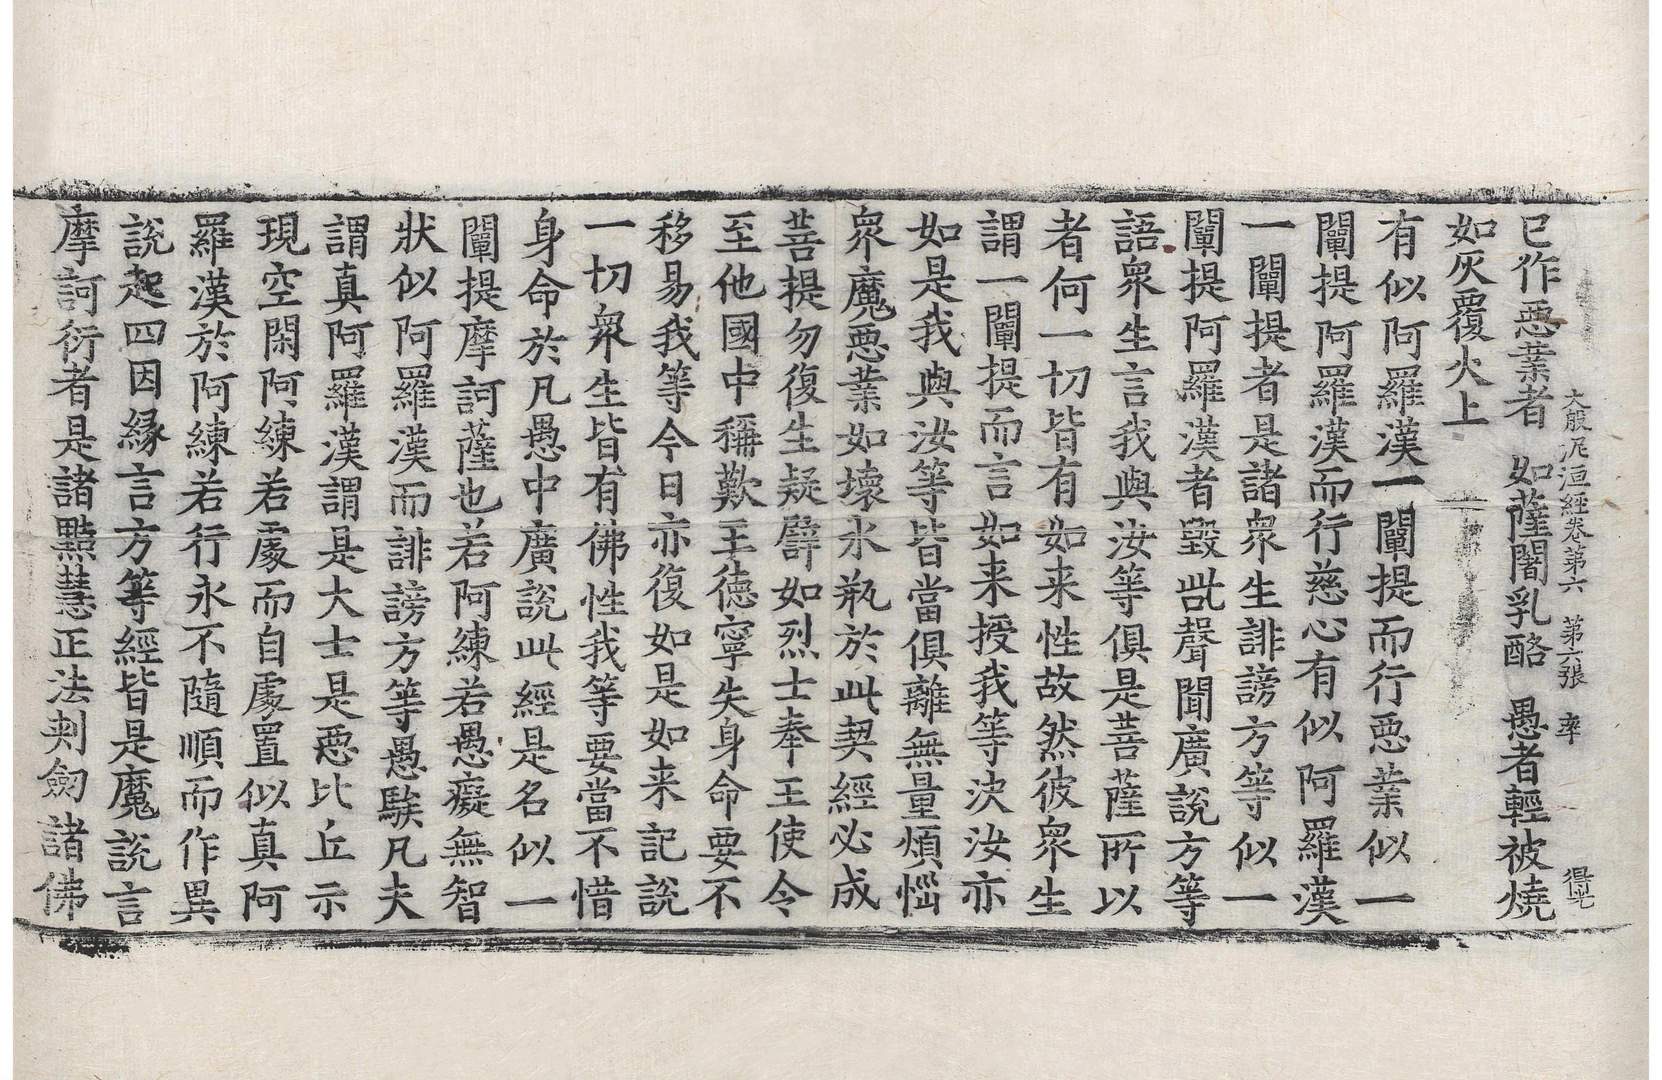 大般泥洹經卷第六　第六張　率
已作惡業者　如薩闍乳酪　愚者輕被燒
如灰覆火上
有似阿羅漢一闡提而行惡業似一
闡提阿羅漢而行慈心有似阿羅漢
一闡提者是諸衆生誹謗方等似一
闡提阿羅漢者毀呰聲聞廣說方等
語衆生言我與汝等俱是菩薩所以
者何一切皆有如来性故然彼衆生
謂一闡提而言如来授我等決汝亦
如是我與汝等皆當俱離無量煩惱
衆魔惡業如壞水瓶於此契經必成
菩提勿復生疑譬如烈士奉王使令
至他國中稱歎王德寧失身命要不
移易我等今日亦復如是如来記說
一切衆生皆有佛性我等要當不惜
身命於凡愚中廣說此經是名似一
闡提摩訶薩也若阿練若愚癡無智
狀似阿羅漢而誹謗方等愚騃凡夫
謂真阿羅漢謂是大士是惡比丘示
現空閑阿練若處而自處置似真阿
羅漢於阿練若行永不隨順而作異
說起四因緣言方等經皆是魔說言
摩訶衍者是諸黠慧正法刾劒諸佛